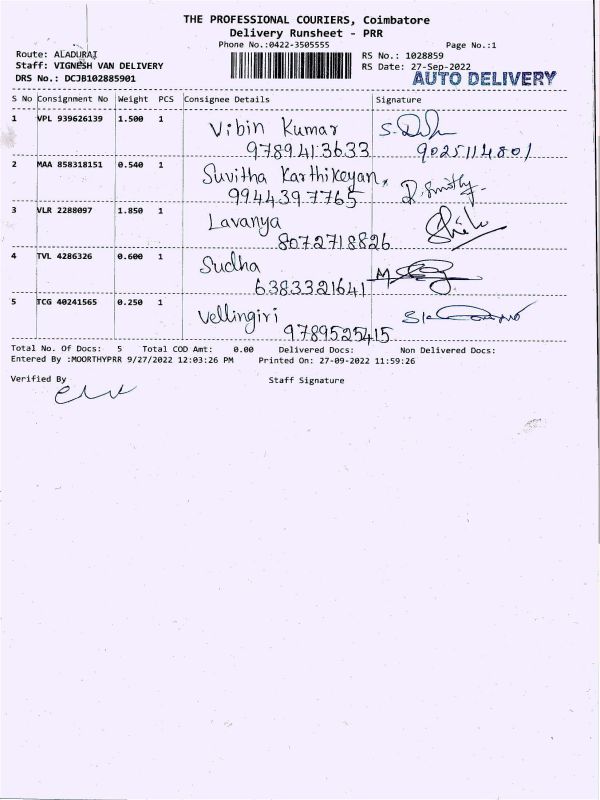 THE PROFESSIONAL COURIERS, Coimbatore
Delivery Runsheet - PRR
Phone No.:0422-3505555
Page No.:1
Route: ALADURAI
RS No.: 1028859
Staff: VIGNESH VAN DELIVERY
RS Date: 27-Sep-2022
DRS No.: DCJB102885901
AUTO DELIVERY
S No Consignment No Weight PCS Consignee Details Signature
1 VPL 939626139 1.500 1 Vibin Kumar
9789413633 9025114801
2 MAA 858318151 0.540 1 Suvitha Karthikeyan,
9944397765
3 VLR 2288097 1.850 1 Lavanya
8072718826
4 TVL 4286326 0.600 1 Sudha
6383321641
5 TCG 40241565 0.250 1 Vellingiri
9789525415
Total No. Of Docs: 5 Total COD Amt: 0.00 Delivered Docs: Non Delivered Docs:
Entered By :MOORTHYPRR 9/27/2022 12:03:26 PM Printed On: 27-09-2022 11:59:26
Verified By Staff Signature